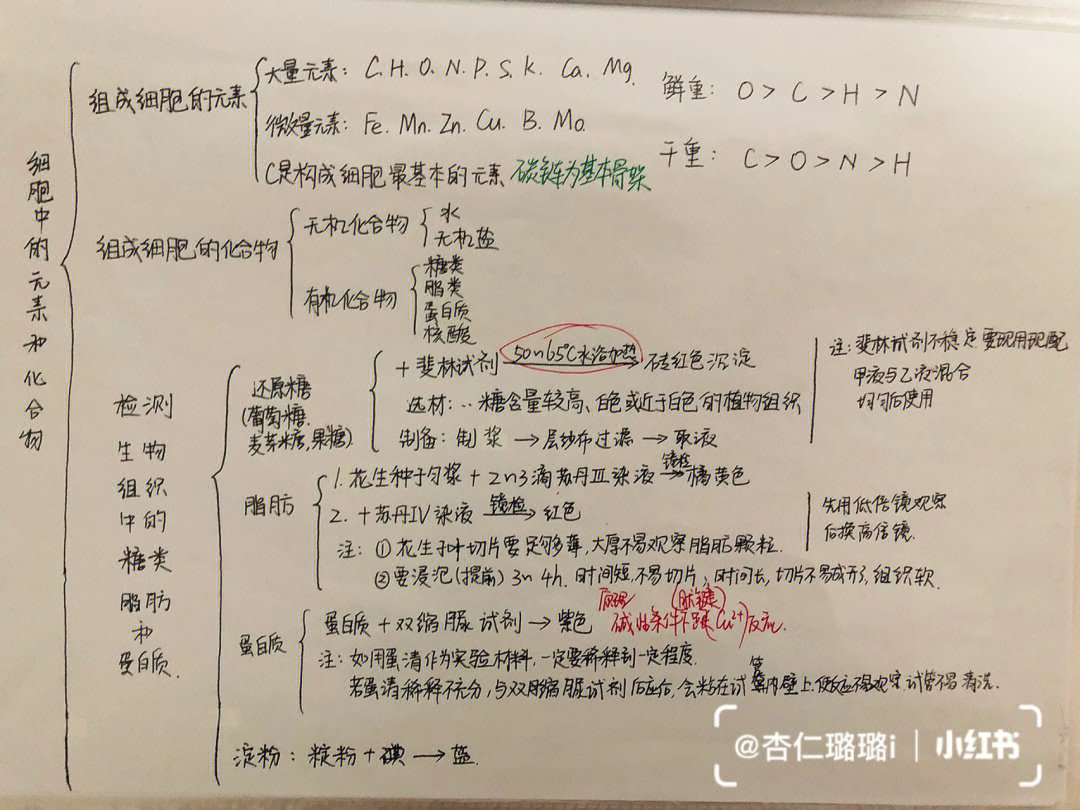 细胞中的元素和化合物
组成细胞的元素
大量元素: C. H. O. N. P. S. K. Ca. Mg.
微量元素: Fe. Mn. Zn. Cu. B. Mo.
C是构成细胞最基本的元素 碳链为基本骨架
鲜重: O > C > H > N
干重: C > O > N > H
组成细胞的化合物
无机化合物
水
无机盐
有机化合物
糖类
脂类
蛋白质
核酸
检测
生物
组织
中的
糖类
脂肪
和
蛋白质
还原糖
(葡萄糖.
麦芽糖,果糖)
+ 斐林试剂 50~65℃水浴加热 砖红色沉淀
选材: ‥糖含量较高、白色或近于白色的植物组织
制备: 制浆 → 层纱布过滤 → 取液
注: 斐林试剂不稳定,要现用现配
甲液与乙液混合
均匀后使用
脂肪
1. 花生种子匀浆 + 2~3滴苏丹Ⅲ染液 镜检→ 橘黄色
2. + 苏丹Ⅳ染液 镜检→ 红色
注: ①花生子叶切片要足够薄,太厚不易观察脂肪颗粒.
②要浸泡(提前) 3~4h. 时间短,不易切片; 时间长,切片不易成形,组织软.
先用低倍镜观察
后换高倍镜.
蛋白质
蛋白质 + 双缩脲试剂 → 紫色
原理 (肽键)
碱性条件下跟(Cu²⁺)反应.
注: 如用蛋清作为实验材料,一定要稀释到一定程度.
若蛋清稀释不充分,与双缩脲试剂反应后,会粘在试管内壁上,使反应不易观察,试管不易清洗.
淀粉: 淀粉 + 碘 → 蓝.
@杏仁璐璐i | 小红书